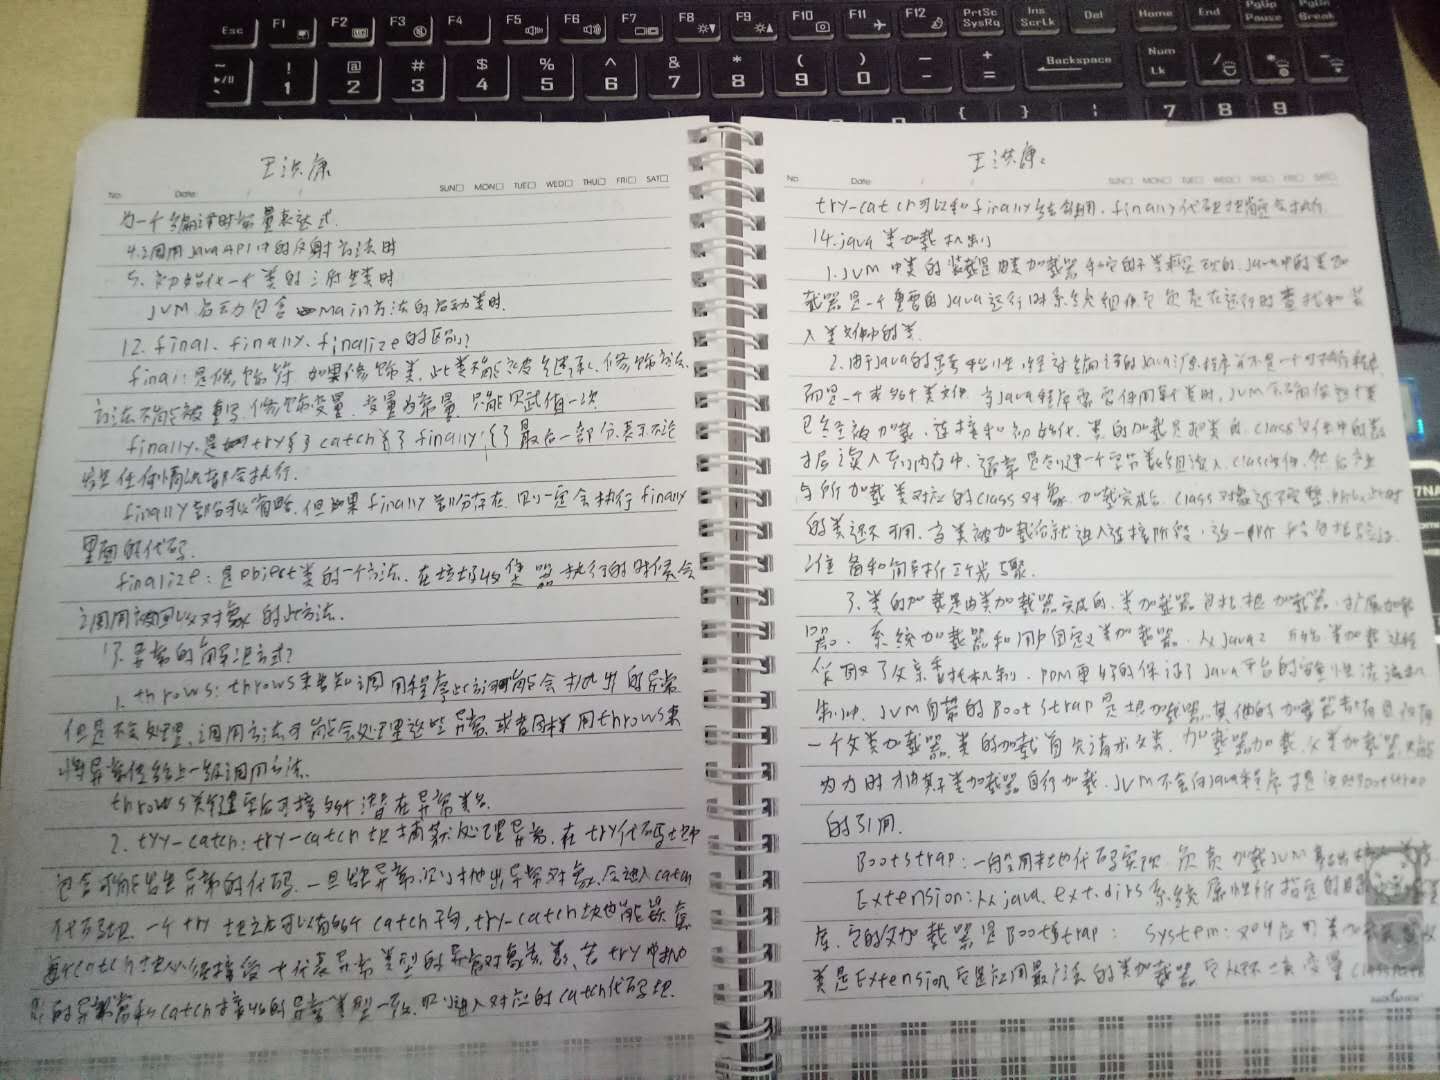 Esc F1 F2 F3 F4 F5 F6 F7 F8 F9 F10 F11 F12 PrtSc SysRq Ins ScrLk Del Home End PgUp Pause PgDn Break
! 1 @ 2 # 3 $ 4 % 5 ^ 6 & 7 * 8 ( 9 ) 0 - + = Backspace Num Lk
7 8 9
王洪康
No. Date: SUN MON TUE WED THU FRI SAT
为一个编译时常量表达式.
4.调用java API中的反射方法时
5.初始化一个类的派生类时
JVM启动包含Main方法的启动类时.
12. final、finally、finalize的区别?
final: 是修饰符 如果修饰类, 此类不能被继承, 修饰方法,
方法不能被重写, 修饰变量, 变量为常量 只能赋值一次
finally: 是try{} catch{} finally{} 最后一部分, 表示不论
发生任何情况都会执行.
finally部分可以省略, 但如果finally部分存在, 则一定会执行finally
里面的代码.
finalize: 是object类的一个方法, 在垃圾收集器执行的时候会
调用被回收对象的此方法.
13. 异常的解决方式?
1. throws: throws来告知调用程序此方法可能会抛出的异常
但是不会处理, 调用方法可能会处理这些异常, 或者同样用throws来
将异常传给上一级调用方法.
throws关键字后可接多个潜在异常类名.
2. tyy-catch: try-catch块捕获处理异常, 在try代码块中
包含可能发生异常的代码, 一旦发生异常, 则抛出异常对象, 会进入catch
代码块, 一个try块之后可以有多个catch子句, try-catch块也能嵌套
每个catch块必须接受一个代表异常类型的异常对象类, 若try中抛
出的异常和catch接收的异常类型一致, 则进入对应的catch代码块.
王洪康
No. Date: SUN MON TUE WED THU FRI SAT
try-catch可以和finally结合使用, finally代码块指定会执行
14. java类加载机制
1. JVM中类的装载是由类加载器和它的子类来实现的, Java中的类加
载器是一个重要的Java运行时系统组件它负责在运行时查找和装
入类文件中的类.
2. 由于Java的跨平台性, 经过编译的Java源程序并不是一个可执行程序,
而是一个或多个类文件, 当Java程序需要使用某个类时, JVM会确保这个类
已经被加载、连接和初始化, 类的加载是把类的.class文件中的数
据读入到内存中, 通常是创建一个字节数组读入.class文件, 然后产生
与所加载类对应的class对象, 加载完成后, class对象还不完整, 所以此时
的类还不可用, 当类被加载后就进入连接阶段, 这一阶段包括验证、
准备和解析三个步骤.
3. 类的加载是由类加载器完成的, 类加载器包括根加载器、扩展加载
器、系统加载器和用户自定义类加载器, 从Java2开始类加载过程
采取了父亲委托机制. PDM更好的保证了Java平台的安全性该机
制中, JVM自带的BootStrap是根加载器, 其他的加载器都有且仅有
一个父类加载器, 类的加载首先请求父类加载器加载, 父类加载器无能
为力时才由其子类加载器自行加载. JVM不会向Java程序提供对Bootstrap
的引用.
Bootstrap: 一般用本地代码实现, 负责加载JVM基础核心类库
Extension: 从java.ext.dirs系统属性所指定的目录
库, 它的父加载器是BootStrap; System: 又叫应用类加载器其父
类是Extension, 它是应用最广泛的类加载器, 它从环境变量classpath